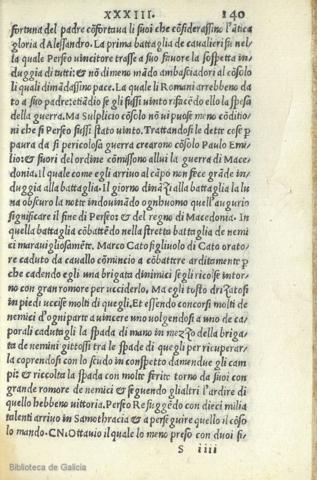 XXXIII. 140
fortuna del padre cõfortava li suoi che cõsiderassino l'ãtica
gloria d'Alessandro. La prima battaglia de cavalieri fu nel
la quale Perseo uincitore trasse a suo fauore la sospetta in
duggia di tutti: & nõ dimeno mãdo ambasciadori al cõsolo
li quali dimãdassino pace. La quale li Romani arrebbeno da
to a suo padre, etiãdio se gli fussi uinto rifacẽdo ello la spesa
della guerra. Ma Sulpicio cõsolo nõ ui puose meno cõditio/
ni che se Perseo fussi stato uinto. Trattandosi le dette cose p
paura da si pericolosa guerra crearono cõsolo Paulo Emi/
lio: & fuori del ordine cõmissono allui la guerra di Mace/
donia. Il quale come egli arrivo al cãpo non fece grãde in/
duggia alla battaglia. Il giorno dinãzi alla battaglia la lu
na obscuro la notte indouinãdo ognhuomo quell'augurio
significare il fine di Perseo: & del regno di Macedonia. In
quella battaglia cõbattẽdo nella stretta battaglia de nemi
ci marauigliosamẽte. Marco Cato figliuolo di Cato orato/
re caduto da cauallo comincio a cõbattere arditamente p
che cadendo egli una brigata dinimici segli ricolse intor/
no con gran romore per ucciderlo. Ma egli tosto drizatosi
in piedi uccise molti di quegli. Et essendo concorsi molti de
nemici d'ogniparte a uincere uno uolgendosi a uno de ca/
porali cadutgli la spada di mano in mezzo della briga/
ta de nemini gittossi tra le spade di quegli per ricuperar/
la coprendosi con lo scudo in conspetto damendue gli cam
pi: & riccolta la spada con molte ferite torno da suoi con
grande romore de nemici & seguendo glialtri l'ardire di
quello hebbeno uittoria. Perseo Re fuggẽdo con dieci milia
talenti arriuo in Samothracia & a perseguire quello il cõso
lo mando. CN: Ottauio il quale lo meno preso con duoi fi/
S iiii
Biblioteca de Galicia